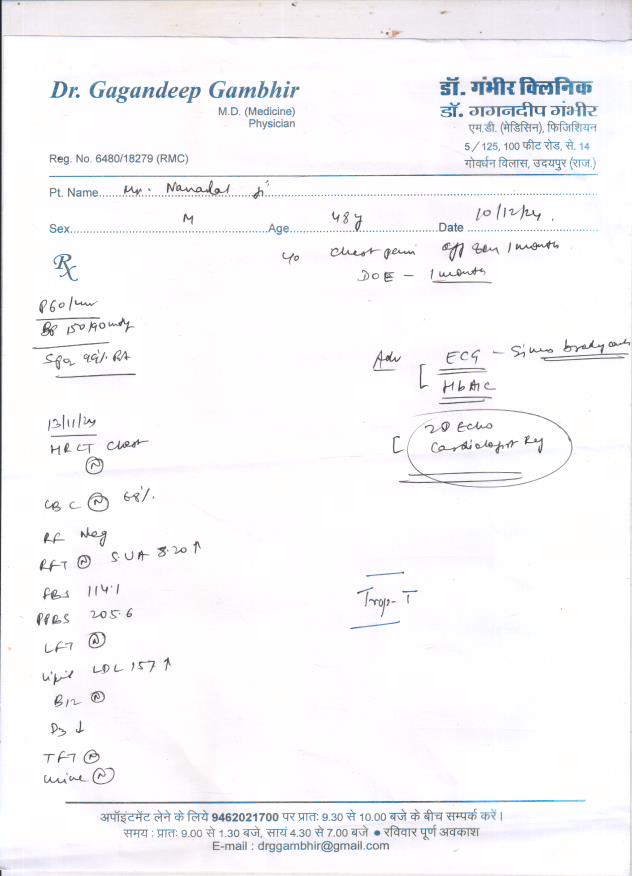 Dr. Gagandeep Gambhir
M.D. (Medicine)
Physician
Reg. No. 6480/18279 (RMC)
डॉ. गंभीर क्लिनिक
डॉ. गगनदीप गंभीर
एम.डी. (मेडिसिन), फिजिशियन
5/125, 100 फीट रोड, से. 14
गोवर्धन विलास, उदयपुर (राज.)
Pt. Name Mr. Nanadal ji
Sex M Age 48y Date 10/12/24.
Rx
c/o chest pain off 1 months
DOE - 1 months
P 60/min
BP 150/90 mmHg
SpO2 99% RA
Adv ECG - Sinus bradycardia
HbA1C
2D Echo
Cardiologist Ref
13/11/24
HRCT Chest
(N)
CBC (N) E8%.
RF Neg
RFT (N) S.UA 8.20 ↑
FBS 114.1
PPBS 205.6
LFT (N)
Lipid LDL 157 ↑
B12 (N)
D3 ↓
TFT (N)
Urine (N)
Trop-T
अपॉइंटमेंट लेने के लिये 9462021700 पर प्रातः 9.30 से 10.00 बजे के बीच सम्पर्क करें।
समय : प्रातः 9.00 से 1.30 बजे, सायं 4.30 से 7.00 बजे ● रविवार पूर्ण अवकाश
E-mail : drggambhir@gmail.com